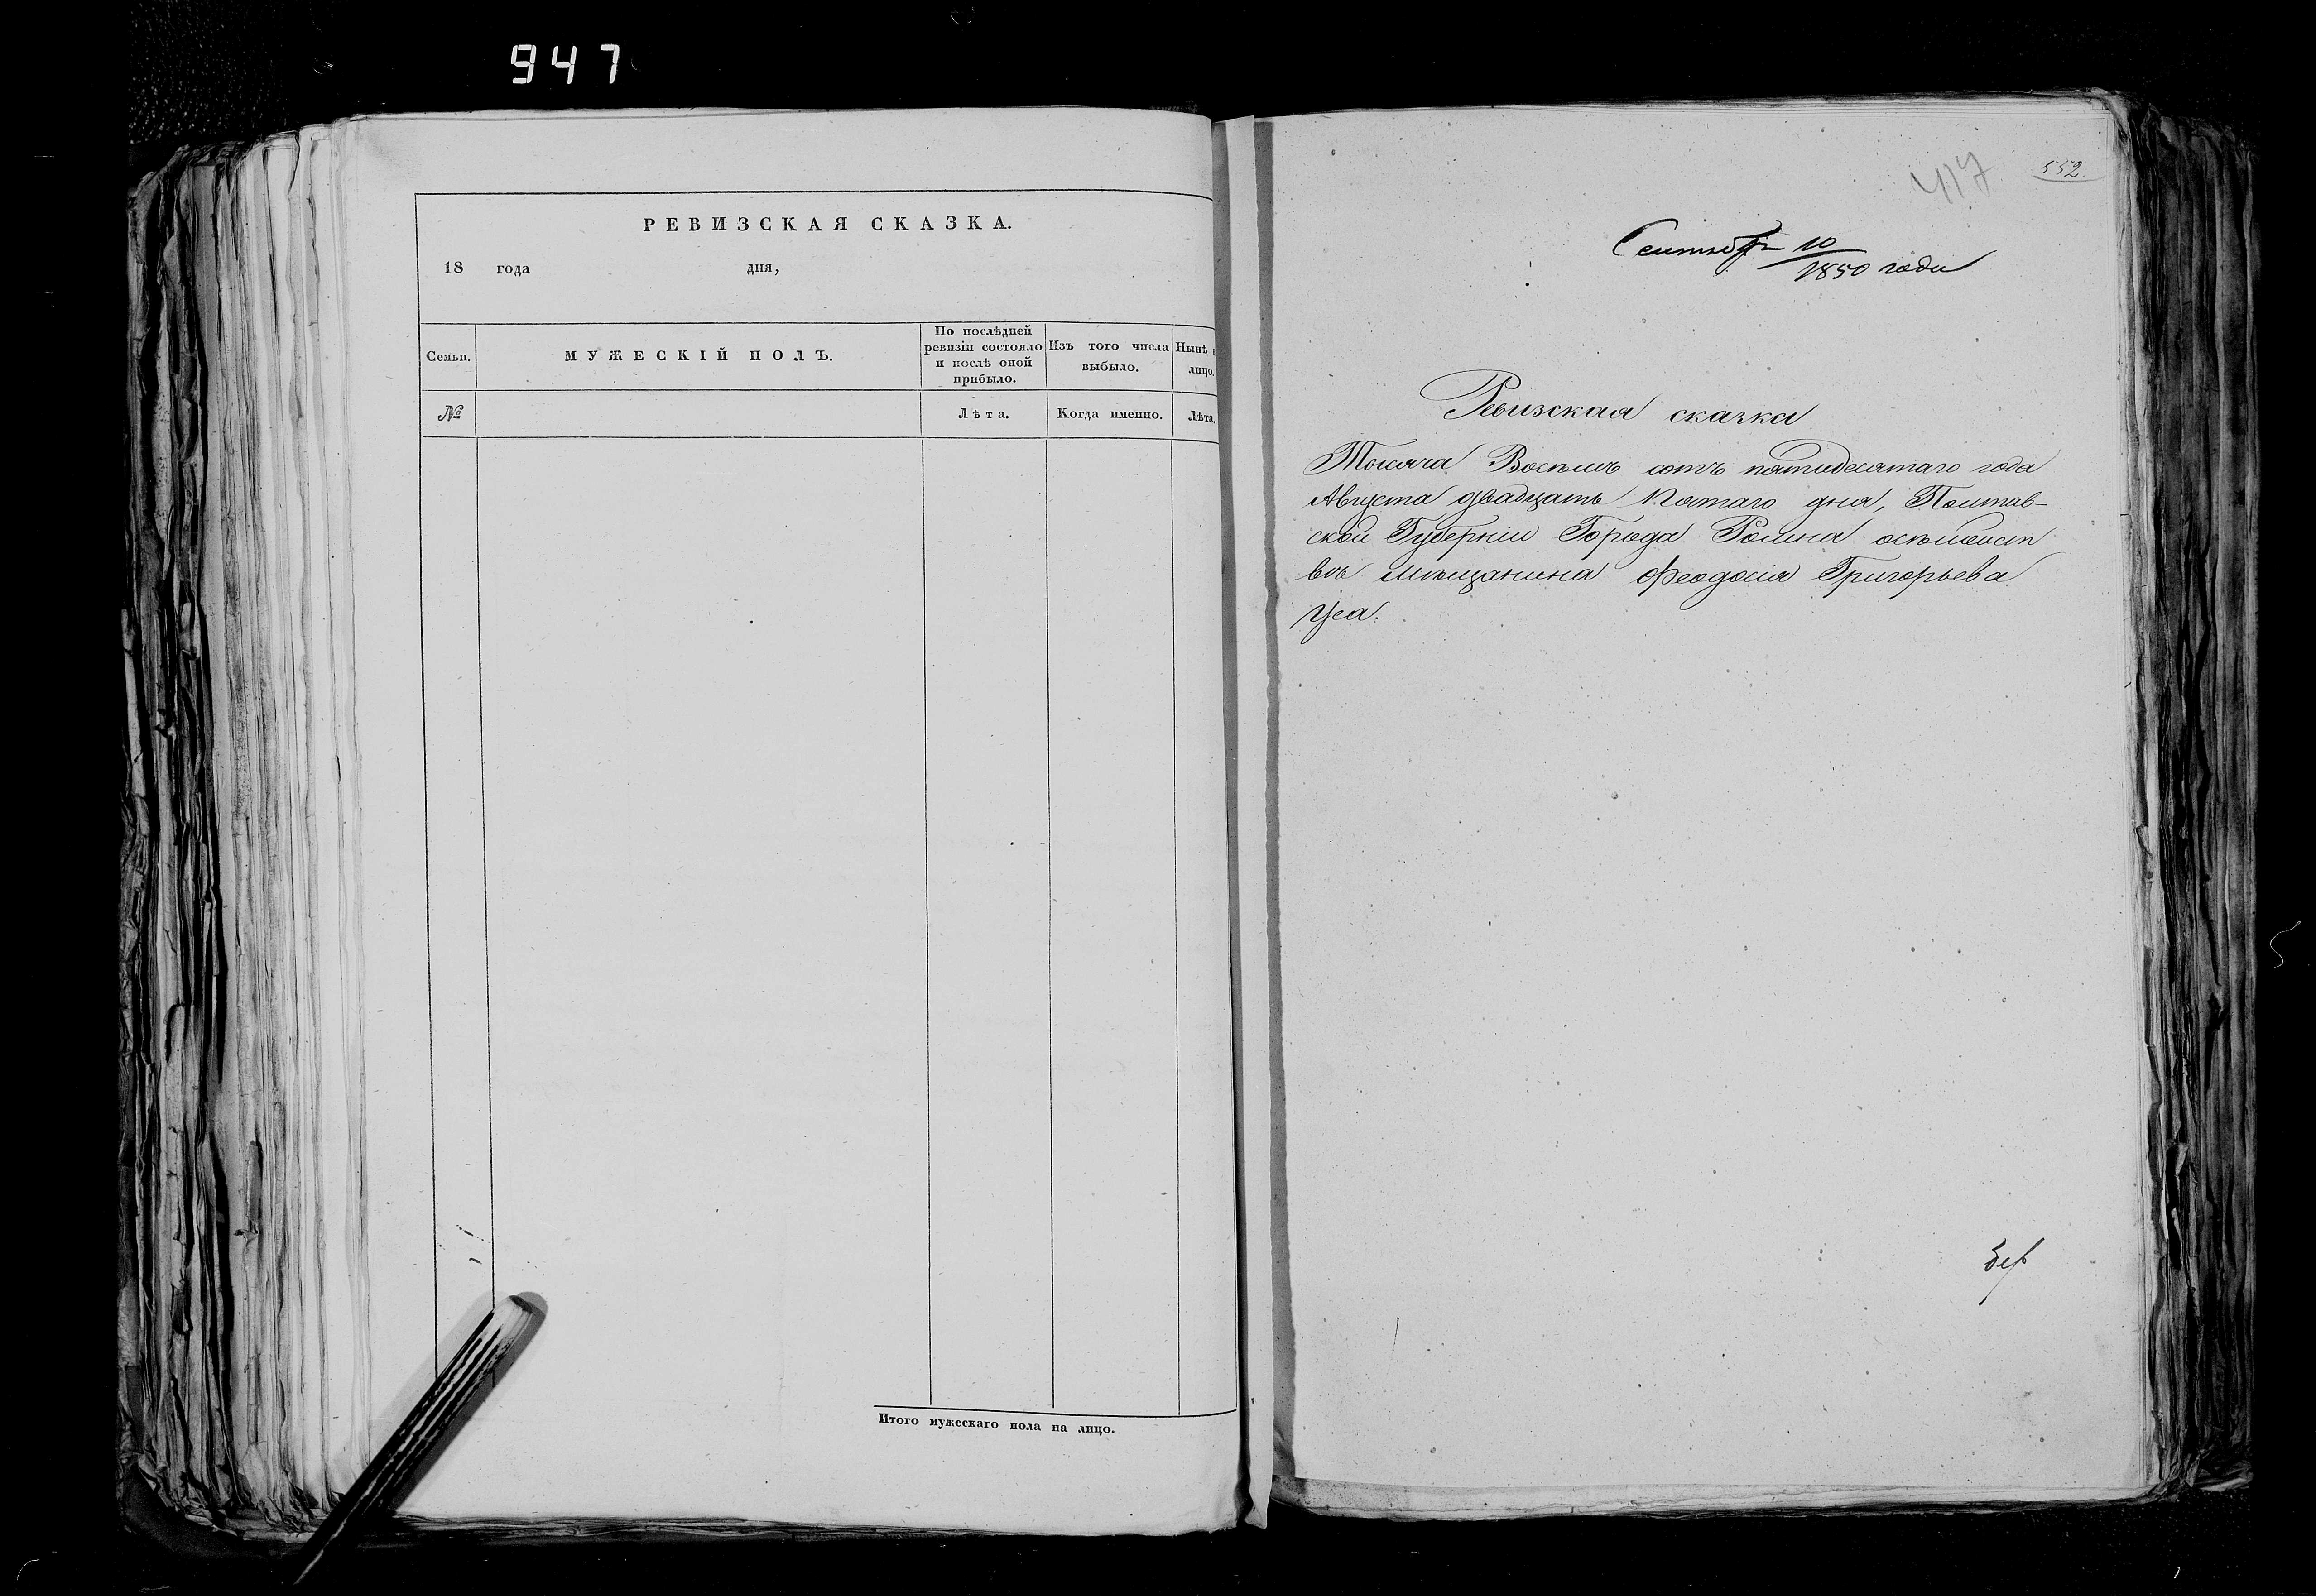 947
РЕВИЗСКАЯ СКАЗКА.
18 года дня,
Семьи.
МУЖЕСКІЙ ПОЛЪ.
По послѣдней
ревизіи состояло
и послѣ оной
прибыло.
Изъ того числа
выбыло.
Нынѣ
лицо.
№
Лѣта.
Когда именно.
Лѣта.
Итого мужескаго пола на лицо.
417
552
10
1850 года
Ревизская сказка
Тысяча Восемъ сотъ пятидесятаго года
Августа двадцать Пятаго дня, Полтав-
ской Губерніи Города Ромна
мѣщанина Феодосія Григорьева
Уса.